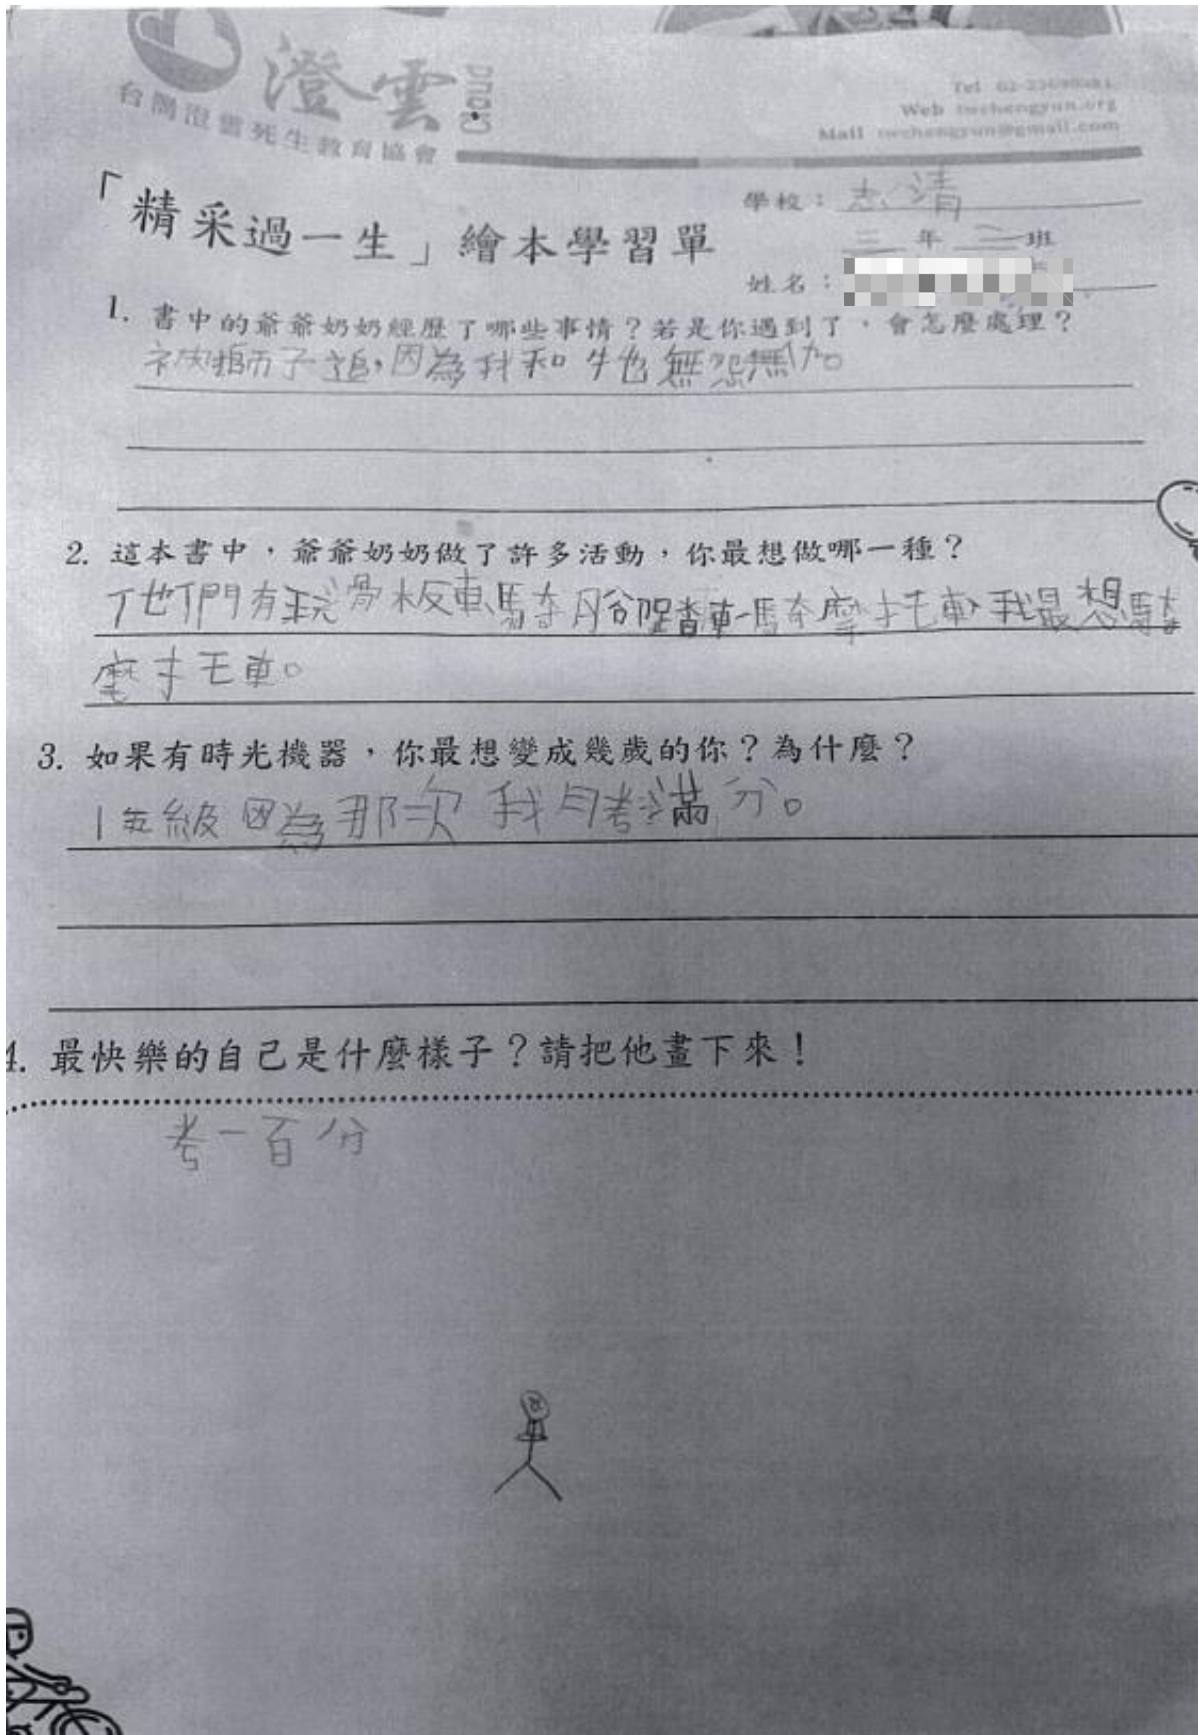 澄雲
台灣澄雲死生教育協會
Tel
Web twchengyun.org
Mail twchengyun@gmail.com
「精采過一生」繪本學習單
學校：志清
三年二班
姓名：
1. 書中的爺爺奶奶經歷了哪些事情？若是你遇到了，會怎麼處理？
被獅子追，因為我和牠無怨無仇。
2. 這本書中，爺爺奶奶做了許多活動，你最想做哪一種？
他們有玩滑板車騎摩托車，我最想騎
摩托車。
3. 如果有時光機器，你最想變成幾歲的你？為什麼？
1年級因為那次我月考滿分。
4. 最快樂的自己是什麼樣子？請把他畫下來！
考一百分